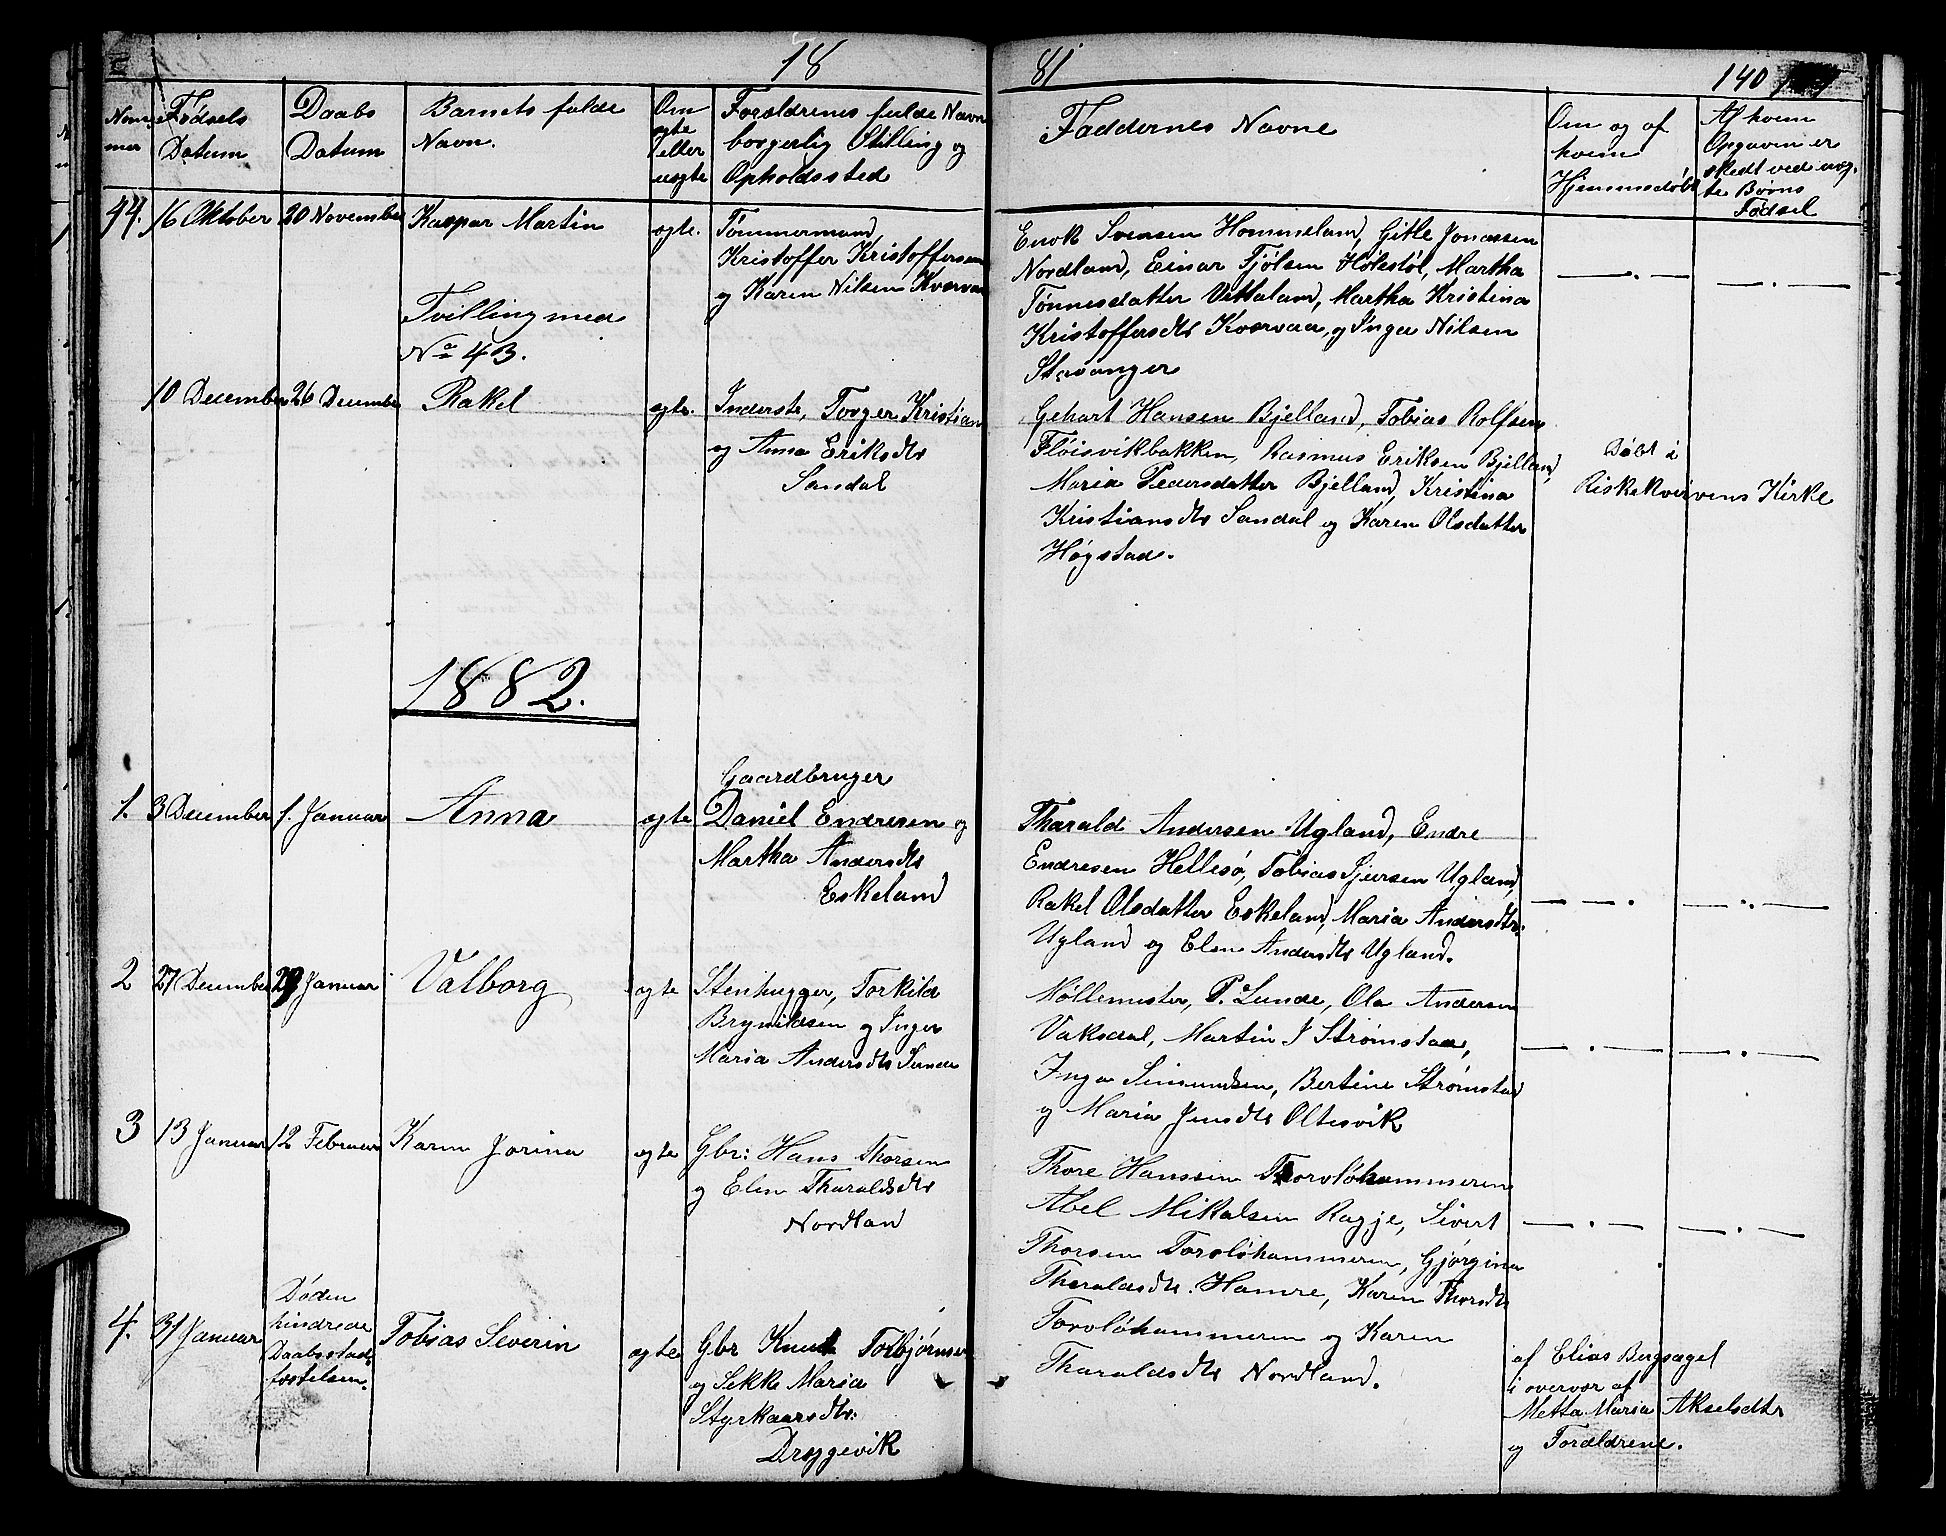 18 81 140
Nom-
mer
Fødsels
Datum
Daabs
Datum
Barnets fulde
Navn.
Om
ægte
eller
uægte
Forældrenes fulde Navn
borgerlig Stilling og
Opholdssted
Faddernes Navne
Om og af
hvem
Hjemmedøbt
Af hvem
Opgaven er
skedt ved uæg-
te Børns
Fødsel
44. 16 Oktober 20 November Kaspar Martin ægte.
Tømmermand,
Kristoffer Kristoffersen
og Karen Nilsen Kværvaa
Tvilling med
No 43.
Enok Svensen Hommeland, Gitle Jonassen
Nordland, Einar Fjølsen Hølestøl, Martha
Tønnesdatter Vittaland, Martha Kristina
Kristoffersdtr Kværvaa, og Inga Nilsen
Stavanger
10 December 26 December Rakel ægte.
Inderste, Torger Kristian
og Anna Eriksdtr
Sandal
Gehart Hansen Bjelland, Tobias Rolfsen
Fløisvikbakken, Rasmus Eriksen Bjelland,
Maria Pedersdatter Bjelland, Kristina
Kristiansdtr Sandal og Karen Olsdatter
Høgstad.
Døbt i
Riskekvervens Kirke
1882.
1. 3 December 1. Januar Anna ægte
Gaardbruger
Daniel Endresen og
Martha Andersdtr
Eskeland
Tharald Andersen Ugland, Endre
Endresen Hellesø, Tobias Sjursen Ugland,
Rakel Olsdatter Eskeland, Maria Andersdtr:
Ugland og Elen Andersdtr Ugland.
2 27 December 29 Januar Valborg ægte
Stenhugger, Torkild
Brynildsen og Inger
Maria Andersdtr Tunde
Møllemester, P. Lunde, Ola Andersen
Vaksdal, Martin J Strømstad,
Inga Simundsen, Bertine Strømstad
og Maria Jensdtr Oltesvik
3 13 Januar 12 Februar Karen Jorina ægte
Gbr: Hans Thorsen
og Elen Tharaldsdtr
Nordland
Thore Hanssen Torvløhammeren
Abel Mikalsen Ragje, Sivert
Thorsen Torvløhammeren, Gjørgina
Tharaldsdtr. Hamre, Karen Thorsdtr
Torvløhammeren og Karen
Tharaldsdtr Nordland.
4. 31 Januar
Døden
hindrede
Daabsstad-
fæstelsen.
Tobias Severin ægte
Gbr Knut Torbjørnsen
og Sekke Maria
Styrkaarsdtr.
Dryggevik
af Elias Bergsagel
i overvær af
Metta Maria Akselsdtr
og Forældrene.